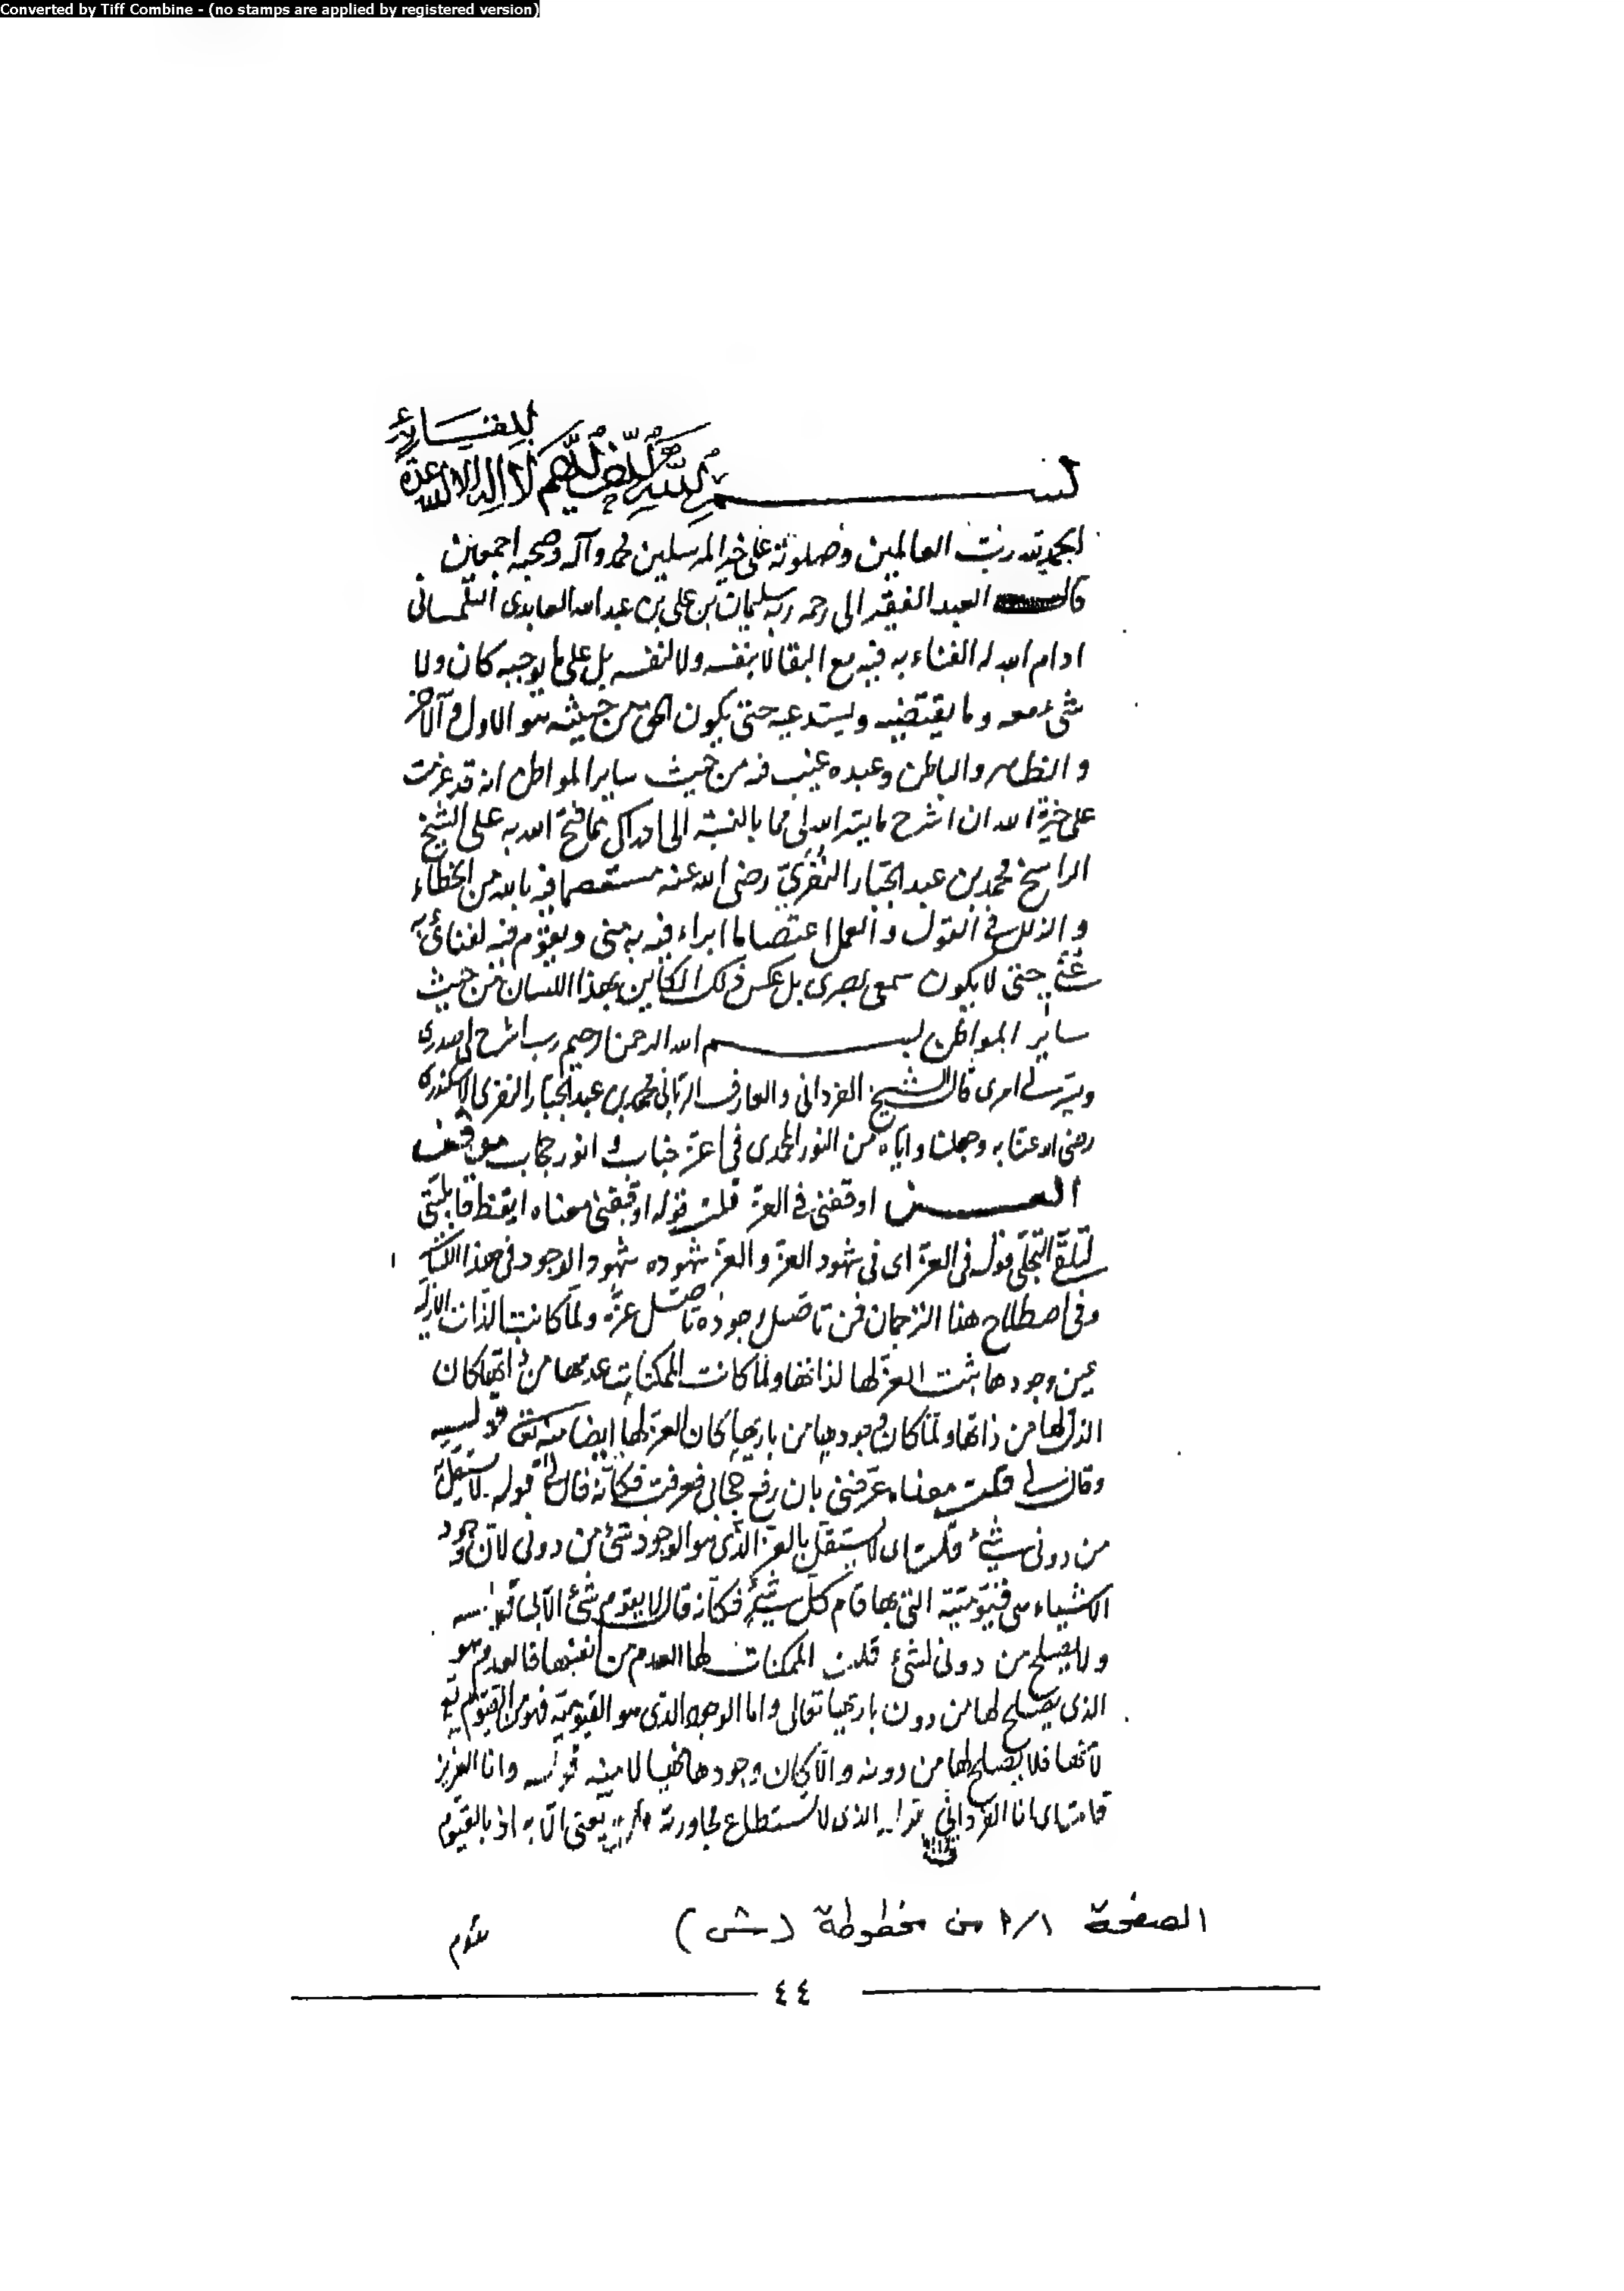 Converted by Tiff Combine - (no stamps are applied by registered version)
بسم الله الرحمن الرحيم لا اله الا الله عدة للقاء الله
الحمد لله رب العالمين وصلوته على خير المرسلين محمد وآله وصحبه اجمعين
قال العبد الفقير الى رحمة ربه سليمان بن على بن عبد الله العابدى التلمسانى
ادام الله له الفناء به فيه مع البقا لا بنفسه ولا لنفسه بل على ما يوجبه كان ولا
شىء معه وما يقتضيه ويستدعيه حتى يكون الحق من حيثه هو الاول والآخر
والظاهر والباطن وعبده غيب فيه من حيث ساير المواطن انه قد عزمت
على خيرة الله ان اشرح ما يسر الله لى مما بالنسبة الى ادراكى مما فتح الله به على الشيخ
الراسخ محمد بن عبد الجبار النفرى رضى الله عنه مستعصما فيه بالله من الخطاء
والزلل فى القول والعمل اعتصاما ابراء فيه به منى ويقوم فيه لفنائى به
عنى حتى لا يكون سمعى بصرى بل عكس ذلك الكاين بهذا اللسان من حيث
سائر المواطن بسم الله الرحمن الرحيم رب اشرح لى صدرى
ويسر لى امرى قال الشيخ الفردانى والعارف الربانى محمد بن عبد الجبار النفرى الاسكندرى
رضى الله عنا به وجعلنا واياه من النور المحمدى فى اعز جناب وانور حجاب موقف
العز اوقفنى فى العز قلت قوله اوقفنى معناه ايقظ قابليتى
لتلقى التجلى قوله فى العز اى فى شهود العز والعز شهوده شهود الوجود فى هذا الكتاب
وفى اصطلاح هذا الترجمان فمن تاصل وجوده تاصل عزه ولما كانت الذات الازلية
عين وجودها ثبت العز لها لذاتها ولما كانت الممكنات عدمها من ذاتها كان
الذل لها من ذاتها ولما كان وجودها من باريها كان العز لها ايضا منه تعالى قوله
وقال لى قلت معناه عرفنى بان رفع حجابى فعرفت فكانه قال لى قوله لا يستقل به
من دونى شىء قلت اى لا يستقل بالعز الذى هو الوجود شىء من دونى لان وجود
الاشياء هى قيوميته التى بها قام كل شىء فكانه قال لا يقوم شىء الا بى قوله
ولا يصلح من دونى لشىء قلت الممكنات لها العدم من انفسها فالعدم هو
الذى يصلح لها من دون باريها تعالى واما الوجود الذى هو القيومية فهو من القيوم تع
لا منها فلا يصلح لها من دونه والا لكان وجودها منها لا منه قوله وانا العزيز
قلت اى انا الفردانى قوله الذى لا تستطاع مجاورته قلت يعنى الا به اذ بالقيوم
الصفحة ٢/١ من مخطوطة (ش)
٤٤